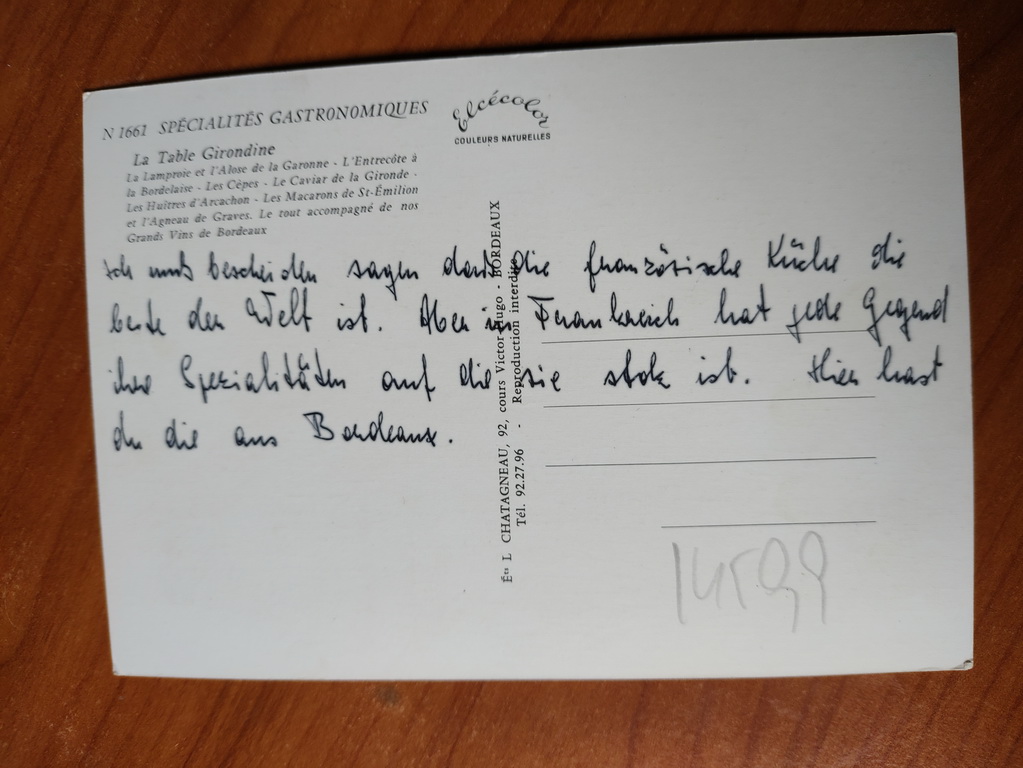 N 1661 SPÉCIALITÉS GASTRONOMIQUES
La Table Girondine
La Lamproie et l'Alose de la Garonne - L'Entrecôte à
la Bordelaise - Les Cèpes - Le Caviar de la Gironde -
Les Huîtres d'Arcachon - Les Macarons de St-Émilion
et l'Agneau de Graves. Le tout accompagné de nos
Grands Vins de Bordeaux
Elcécolor
COULEURS NATURELLES
Ich muss bescheiden sagen dass die französische Küche die
beste der Welt ist. Aber in Frankreich hat jede Gegend
ihre Spezialitäten auf die sie stolz ist. Hier hast
du die aus Bordeaux.
Éts L CHATAGNEAU, 92, cours Victor Hugo - BORDEAUX
Tél. 92.27.96 - Reproduction interdite